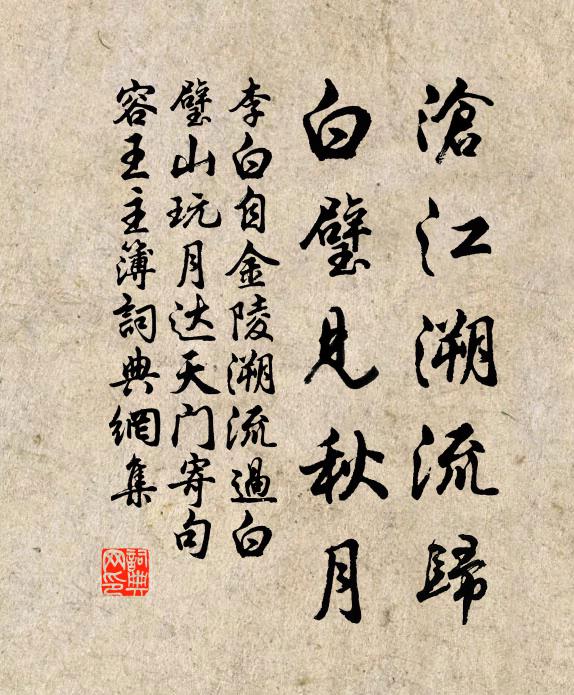 滄江溯流歸
白璧見秋月
李白自金陵溯流過白
璧山玩月达天门寄句
容王主簿詞典網集
詞典网印